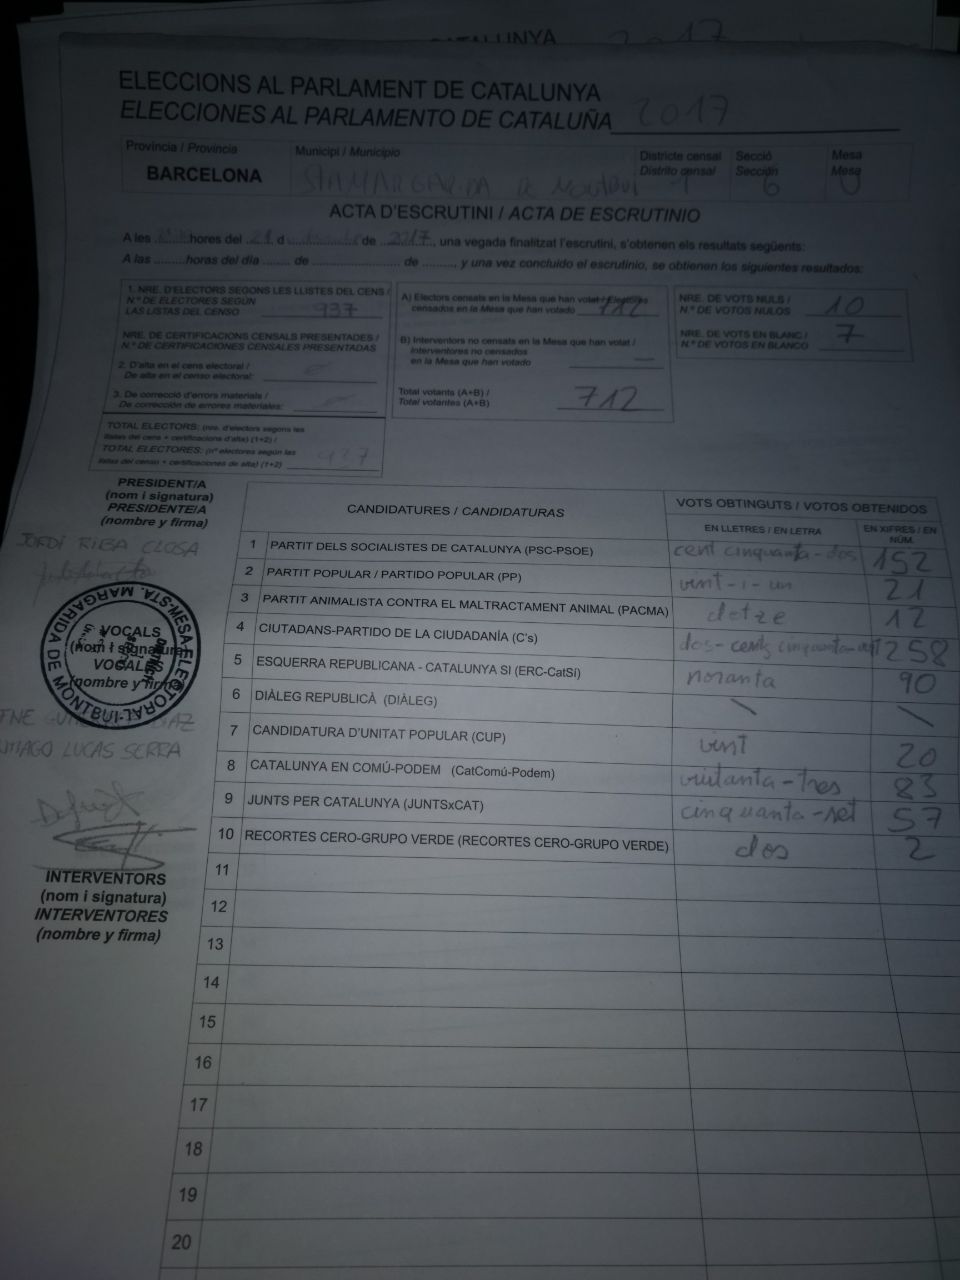 CATALUNYA 2017
ELECCIONS AL PARLAMENT DE CATALUNYA
ELECCIONES AL PARLAMENTO DE CATALUÑA 2017
Província / Provincia
BARCELONA
Municipi / Municipio
STA MARGARIDA DE MONTBUI
Districte censal
Distrito censal
1
Secció
Sección
6
Mesa
Mesa
U
ACTA D'ESCRUTINI / ACTA DE ESCRUTINIO
A les hores del 21 d de 2017, una vegada finalitzat l'escrutini, s'obtenen els resultats següents:
A las .........horas del día ........ de ......................... de ........., y una vez concluido el escrutinio, se obtienen los siguientes resultados:
1. NRE. D'ELECTORS SEGONS LES LLISTES DEL CENS /
N.º DE ELECTORES SEGÚN
LAS LISTAS DEL CENSO 937
NRE. DE CERTIFICACIONS CENSALS PRESENTADES /
N.º DE CERTIFICACIONES CENSALES PRESENTADAS
2. D'alta en el cens electoral /
De alta en el censo electoral:
3. De correcció d'errors materials /
De corrección de errores materiales:
TOTAL ELECTORS: (nre. d'electors segons les
llistes del cens + certificacions d'alta) (1+2) /
TOTAL ELECTORES: (nº electores según las
listas del censo + certificaciones de alta) (1+2) 937
A) Electors censats en la Mesa que han votat / Electores
censados en la Mesa que han votado 712
B) Interventors no censats en la Mesa que han votat /
Interventores no censados
en la Mesa que han votado —
Total votants (A+B) /
Total votantes (A+B) 712
NRE. DE VOTS NULS /
N.º DE VOTOS NULOS 10
NRE. DE VOTS EN BLANC /
N.º DE VOTOS EN BLANCO 7
PRESIDENT/A
(nom i signatura)
PRESIDENTE/A
(nombre y firma)
JORDI RIBA CLOSA
MESA ELECTORAL - STA. MARGARIDA DE MONTBUI
VOCALS
(nom i signatura)
VOCALES
(nombre y firma)
LUCAS SERRA
INTERVENTORS
(nom i signatura)
INTERVENTORES
(nombre y firma)
CANDIDATURES / CANDIDATURAS
VOTS OBTINGUTS / VOTOS OBTENIDOS
EN LLETRES / EN LETRA
EN XIFRES / EN
NÚM.
1 PARTIT DELS SOCIALISTES DE CATALUNYA (PSC-PSOE) cent cinquanta-dos 152
2 PARTIT POPULAR / PARTIDO POPULAR (PP) vint-i-un 21
3 PARTIT ANIMALISTA CONTRA EL MALTRACTAMENT ANIMAL (PACMA) dotze 12
4 CIUTADANS-PARTIDO DE LA CIUDADANÍA (C's) dos-cents cinquanta-vuit 258
5 ESQUERRA REPUBLICANA - CATALUNYA SI (ERC-CatSí) noranta 90
6 DIÀLEG REPUBLICÀ (DIÀLEG) \ \
7 CANDIDATURA D'UNITAT POPULAR (CUP) vint 20
8 CATALUNYA EN COMÚ-PODEM (CatComú-Podem) vuitanta-tres 83
9 JUNTS PER CATALUNYA (JUNTSxCAT) cinquanta-set 57
10 RECORTES CERO-GRUPO VERDE (RECORTES CERO-GRUPO VERDE) dos 2
11
12
13
14
15
16
17
18
19
20